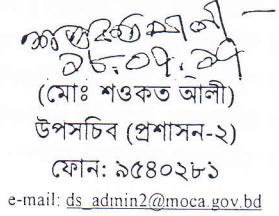 ২৮.০৭.
(মোঃ শওকত আলী)
উপসচিব (প্রশাসন-২)
ফোন: ৯৫৪০২৮১
e-mail: ds_admin2@moca.gov.bd